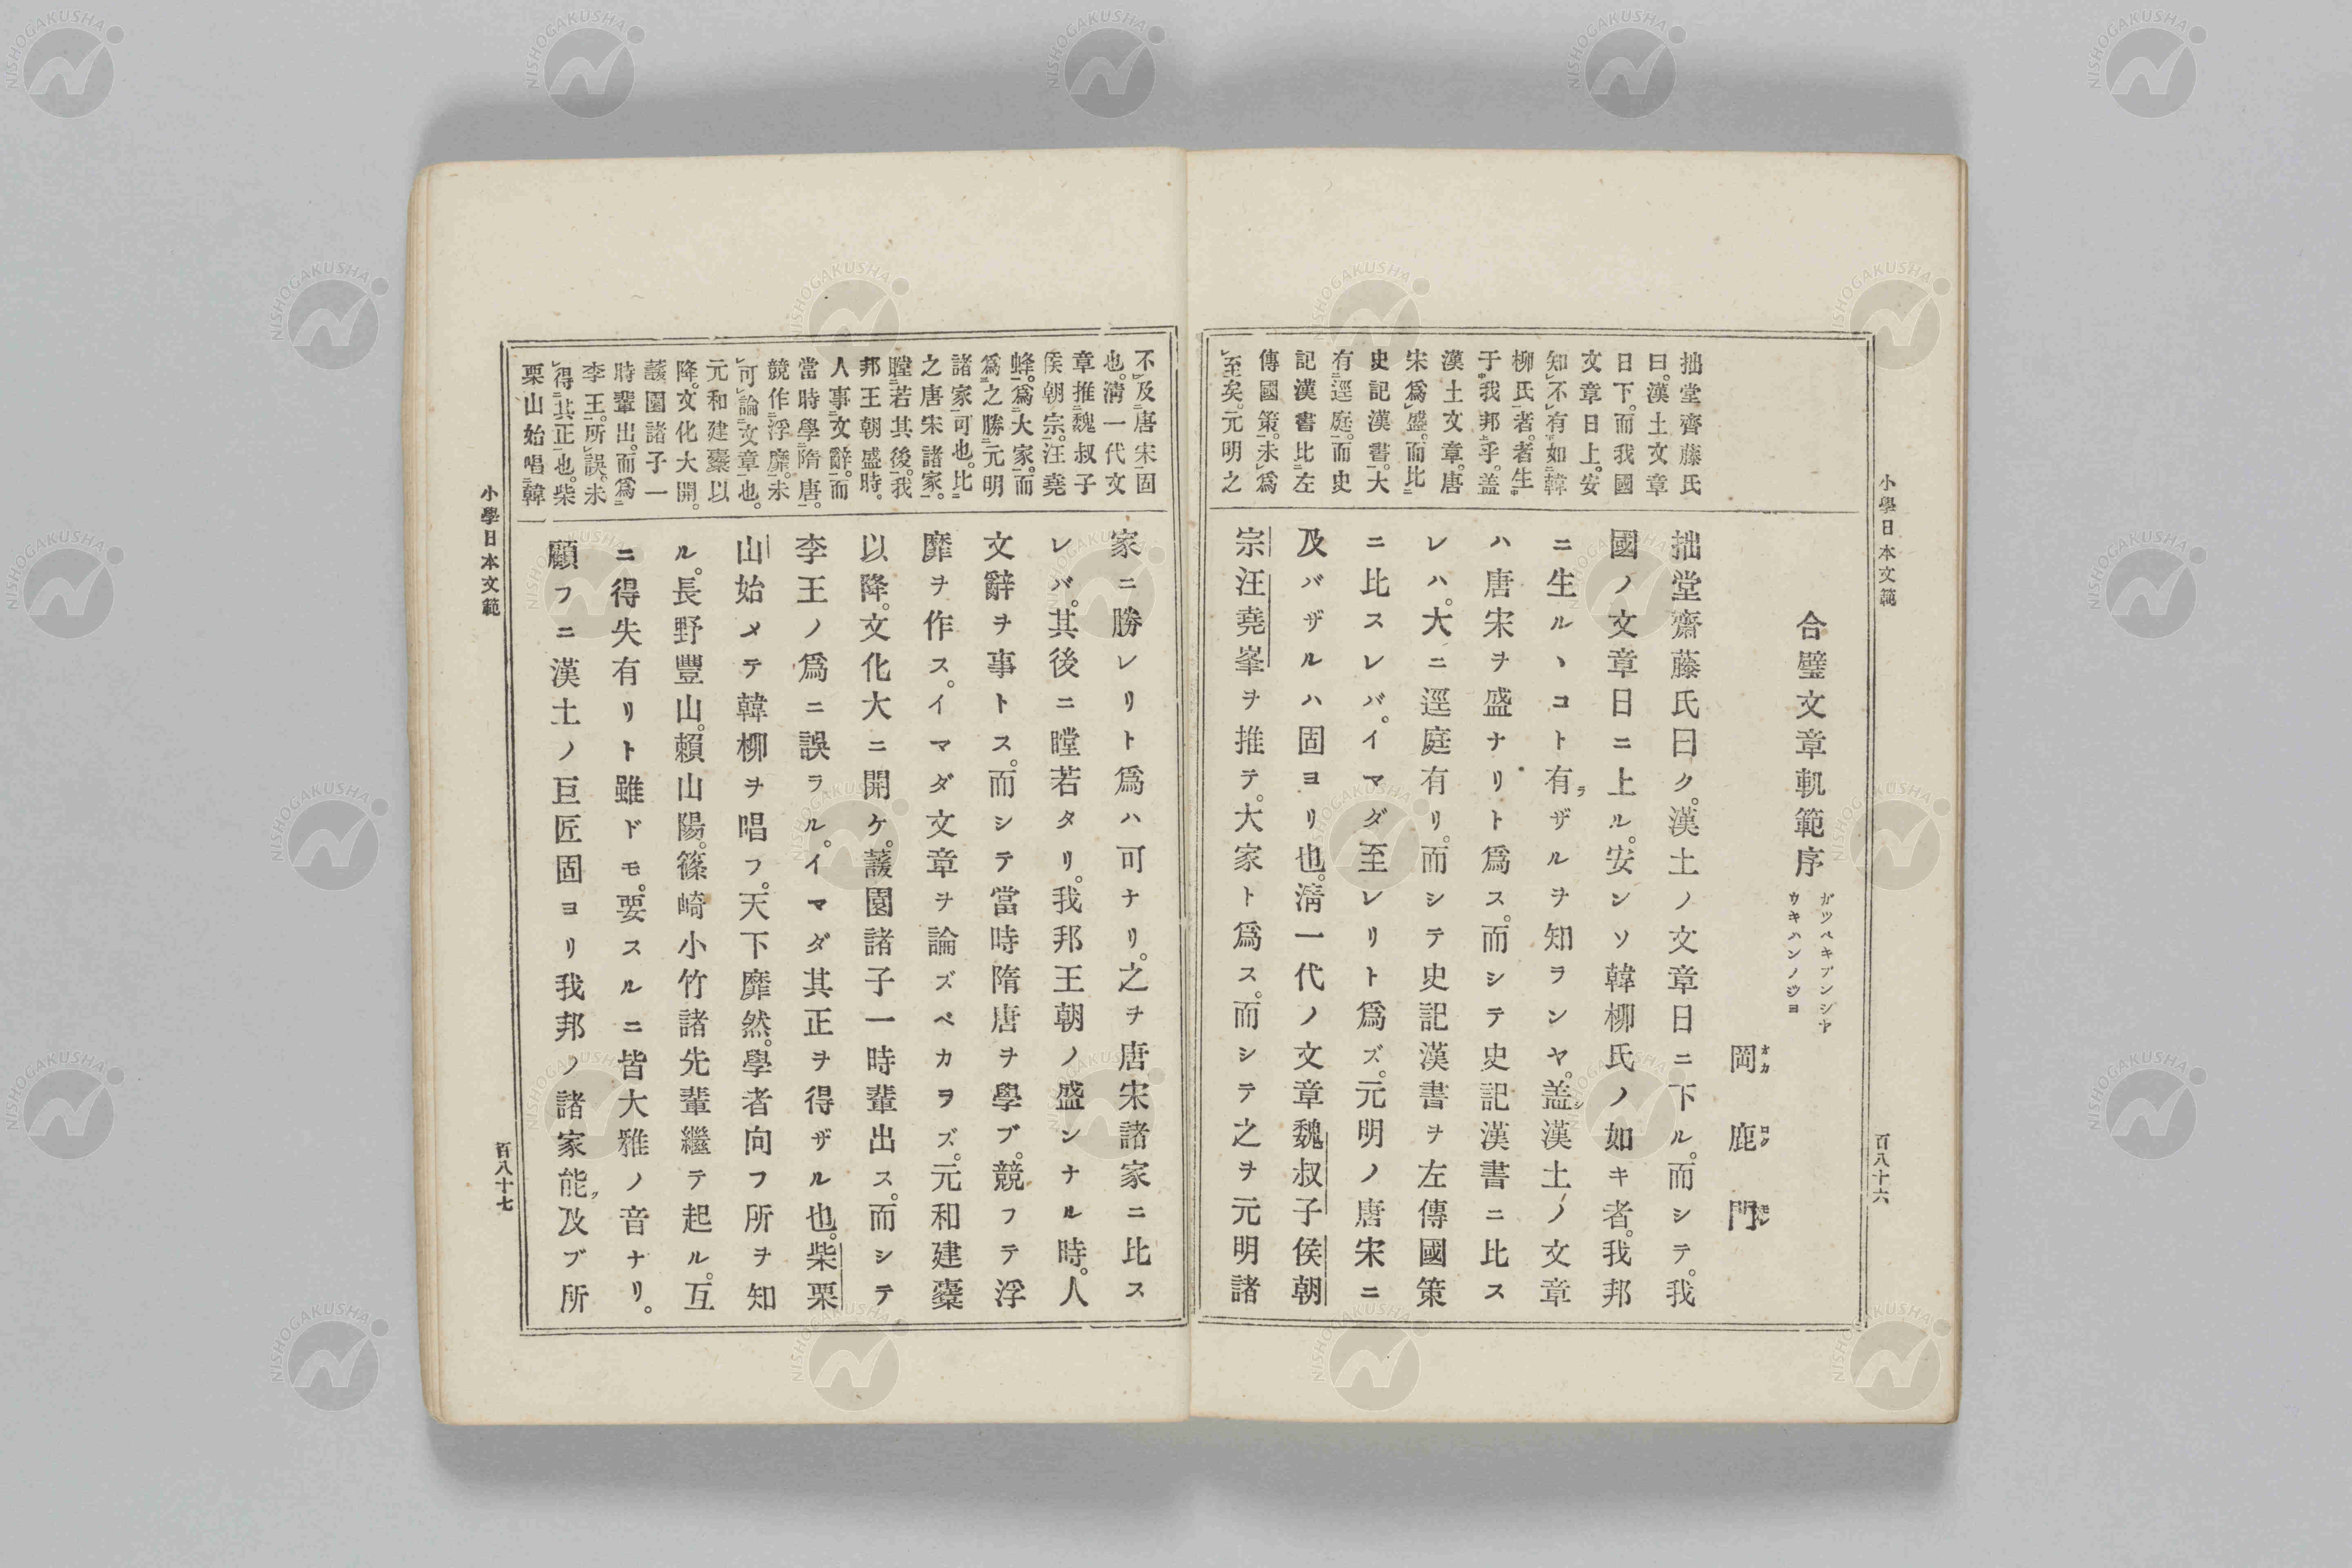 小學日本文範
百八十六
拙堂齊藤氏
曰。漢土文章
日下。而我國
文章日上。安
知不有如韓
柳氏者。者生
于我邦乎。盖
漢土文章。唐
宋爲盛。而比
史記漢書。大
有逕庭。而史
記漢書比左
傳國策。未爲
至矣。元明之
合璧文章軌範序
ガツペキブンシヤ
ウキハンノジヨ
岡鹿門
オカ ロク モン
拙堂齋藤氏曰ク。漢土ノ文章日ニ下ル。而シテ。我
國ノ文章日ニ上ル。安ンソ韓柳氏ノ如キ者。我邦
ニ生ルヽコト有ラザルヲ知ランヤ。盖シ漢土ノ文章
ハ唐宋ヲ盛ナリト爲ス。而シテ史記漢書ニ比ス
レハ。大ニ逕庭有リ。而シテ史記漢書ヲ左傳國策
ニ比スレバ。イマダ至レリト爲ズ。元明ノ唐宋ニ
及バザルハ固ヨリ也。淸一代ノ文章魏叔子侯朝
宗汪堯峯ヲ推テ。大家ト爲ス。而シテ之ヲ元明諸
不及唐宋固
也。淸一代文
章推魏叔子
侯朝宗。汪堯
蜂。爲大家。而
爲之勝元明
諸家可也。比
之唐宋諸家。
瞠若其後。我
邦王朝盛時。
人事文辭。而
當時學隋唐。
競作浮靡。未
可論文章也。
元和建櫜以
降。文化大開。
蘐園諸子一
時輩出。而爲
李王。所誤。未
得其正也。柴
栗山始唱韓
家ニ勝レリト爲ハ可ナリ。之ヲ唐宋諸家ニ比ス
レバ。其後ニ瞠若タリ。我邦王朝ノ盛ンナル時。人
文辭ヲ事トス。而シテ當時隋唐ヲ學ブ。競フテ浮
靡ヲ作ス。イマダ文章ヲ論ズベカヲズ。元和建櫜
以降。文化大ニ開ケ。蘐園諸子一時輩出ス。而シテ
李王ノ爲ニ誤ラル。イマダ其正ヲ得ザル也。柴栗
山始メテ韓柳ヲ唱フ。天下靡然。學者向フ所ヲ知
ル。長野豐山。賴山陽。篠崎小竹諸先輩繼テ起ル。互
ニ得失有リト雖ドモ。要スルニ皆大雅ノ音ナリ。
顧フニ漢土ノ巨匠固ヨリ我邦ノ諸家能ク及ブ所
小學日本文範
百八十七
NISHOGAKUSHA